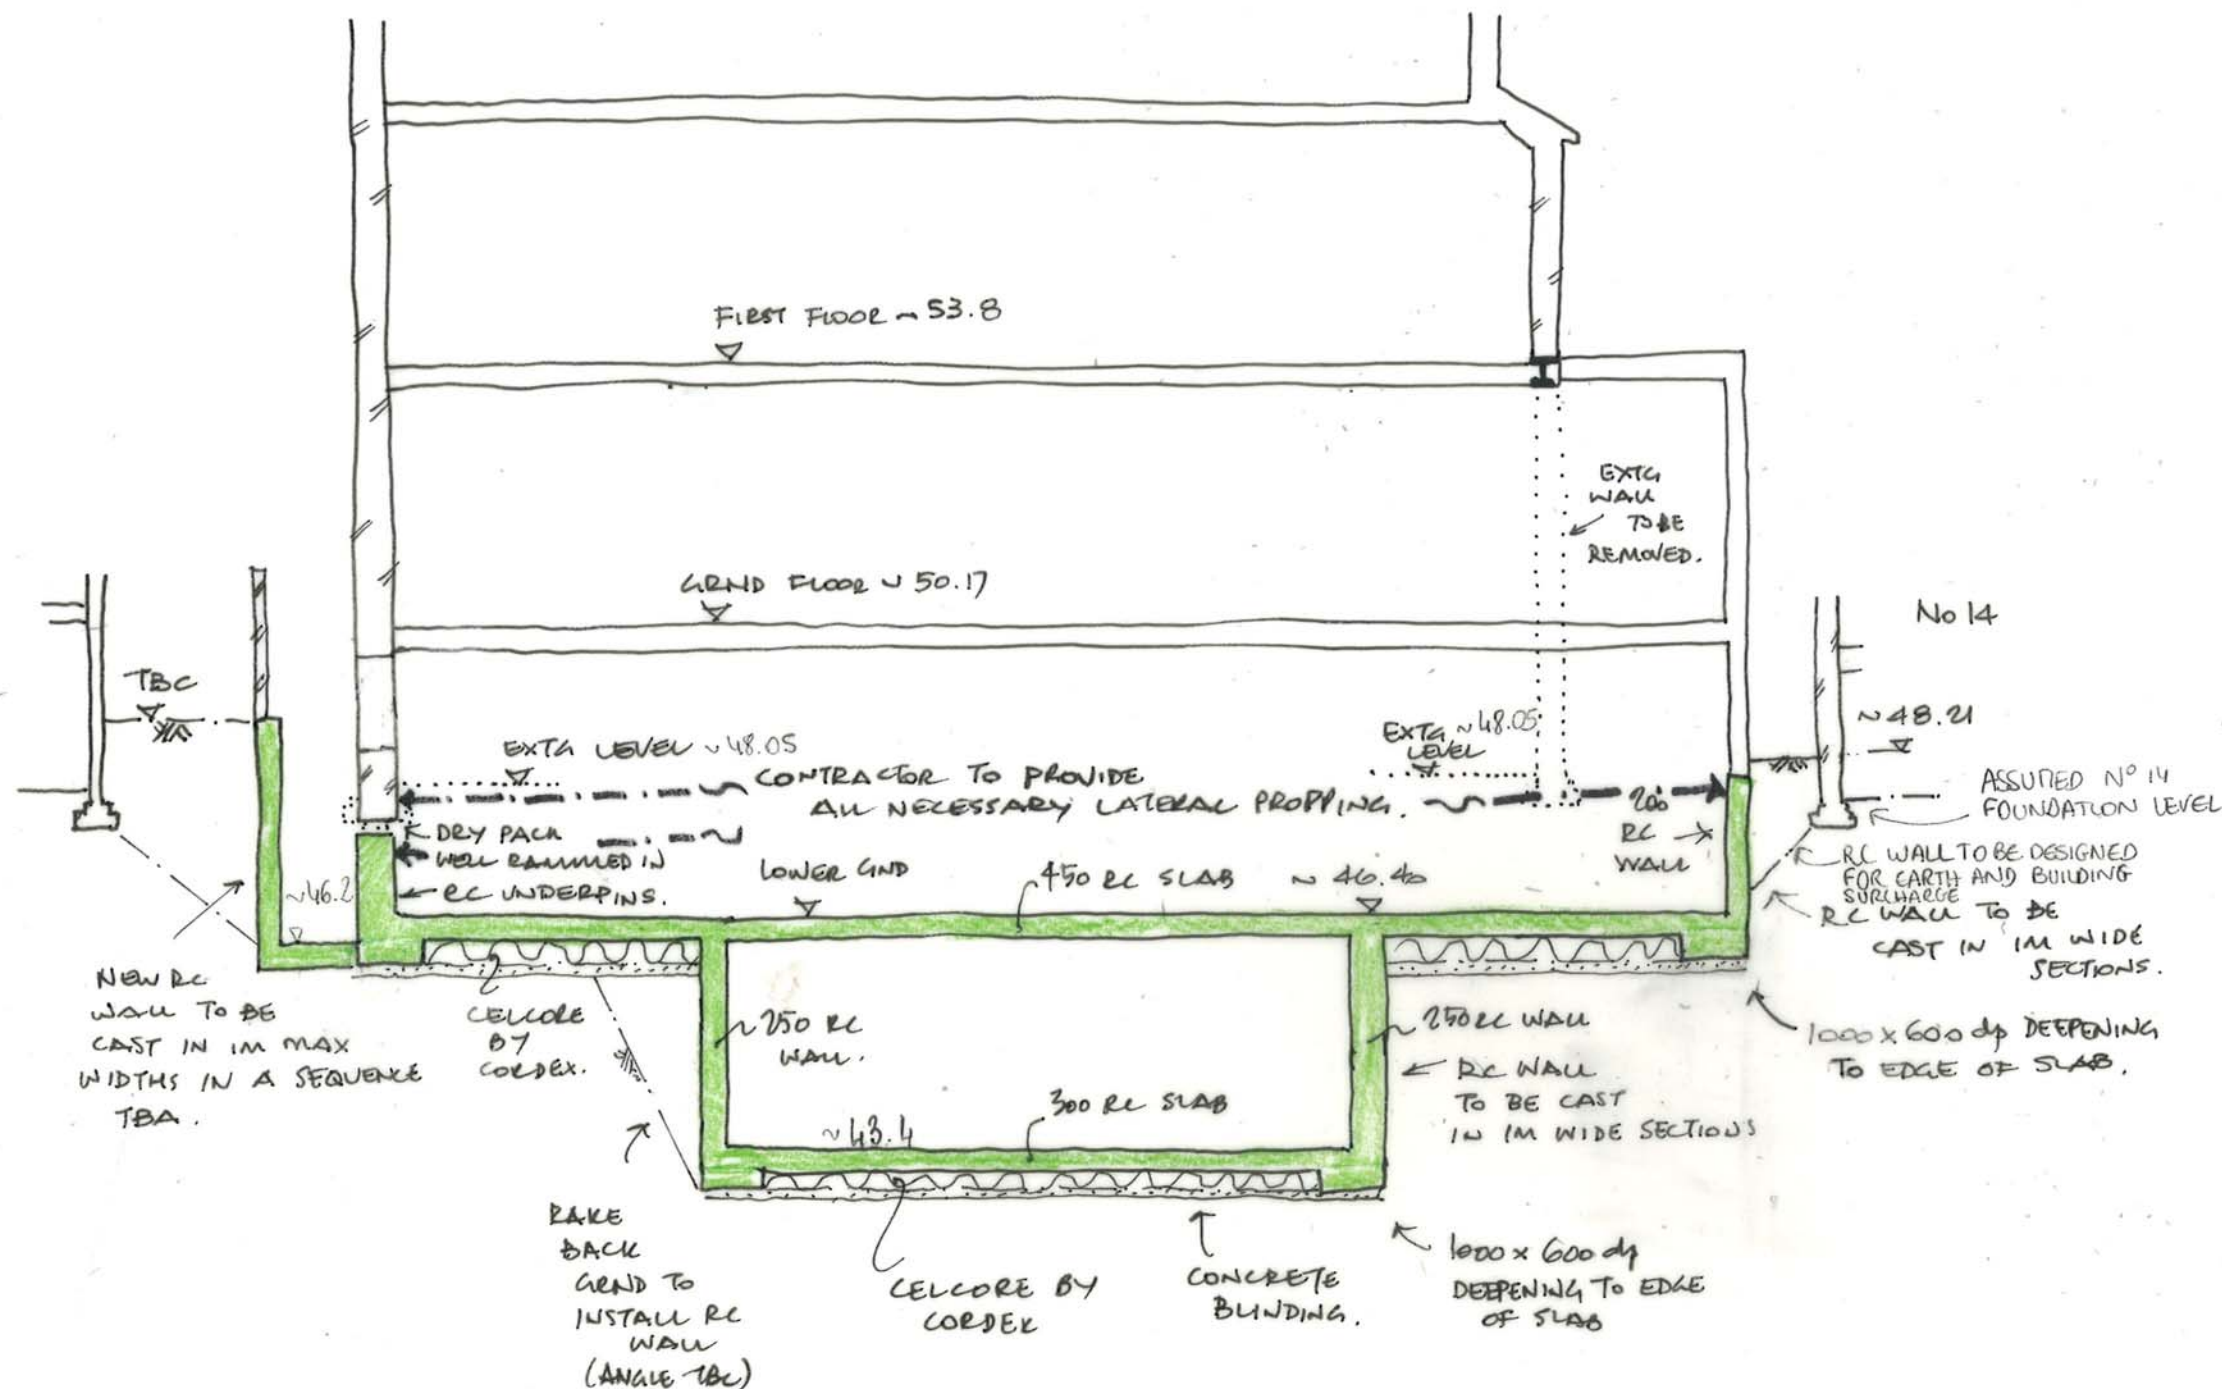 FIRST FLOOR ~ 53.8
EXTG
WALL
TO BE
REMOVED.
GRND FLOOR ~ 50.17
No 14
TBC
~48.21
EXTG LEVEL ~48.05
EXTG ~48.05
LEVEL
CONTRACTOR TO PROVIDE
ALL NECESSARY LATERAL PROPPING.
200
RC
WALL
ASSUMED No 14
FOUNDATION LEVEL
DRY PACK
WELL RAMMED IN
RC UNDERPINS.
LOWER GND
450 RC SLAB
~ 46.40
RC WALL TO BE DESIGNED
FOR EARTH AND BUILDING
SURCHARGE
RC WALL TO BE
CAST IN 1M WIDE
SECTIONS.
~46.2
NEW RC
WALL TO BE
CAST IN 1M MAX
WIDTHS IN A SEQUENCE
TBA.
CELCORE
BY
CORDEX.
~250 RC
WALL.
~250 RC WALL
RC WALL
TO BE CAST
IN 1M WIDE SECTIONS
1000 x 600 dp DEEPENING
TO EDGE OF SLAB.
300 RC SLAB
~43.4
RAKE
BACK
GRND TO
INSTALL RC
WALL
(ANGLE TBC)
CELCORE BY
CORDEK
CONCRETE
BLINDING.
1000 x 600 dp
DEEPENING TO EDGE
OF SLAB